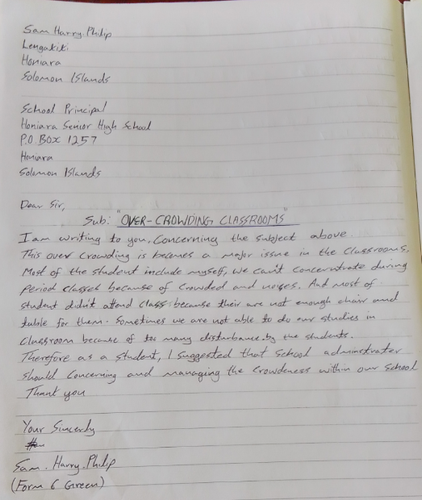 Sam Harry Philip
Lengakiki
Honiara
Solomon Islands
School Principal
Honiara Senior High School
P.O BOX 1257
Honiara
Solomon Islands
Dear Sir,
Sub: "OVER-CROWDING CLASSROOMS"
I am writing to you, Concerning the subject above.
This over crowding is becomes a major issue in the classrooms.
Most of the student include myself, we can't concerntrate during
period classes because of crowded and noises. And most of
student didn't atend class because their are not enough chair and
table for them. Sometimes we are not able to do our studies in
classroom because of too many disturbance by the students.
Therefore as a student, I suggested that school adminstrater
should concerning and managing the crowdeness within our school
Thank you
Your Sincerly
Sam. Harry. Philip
(Form 6 Green)